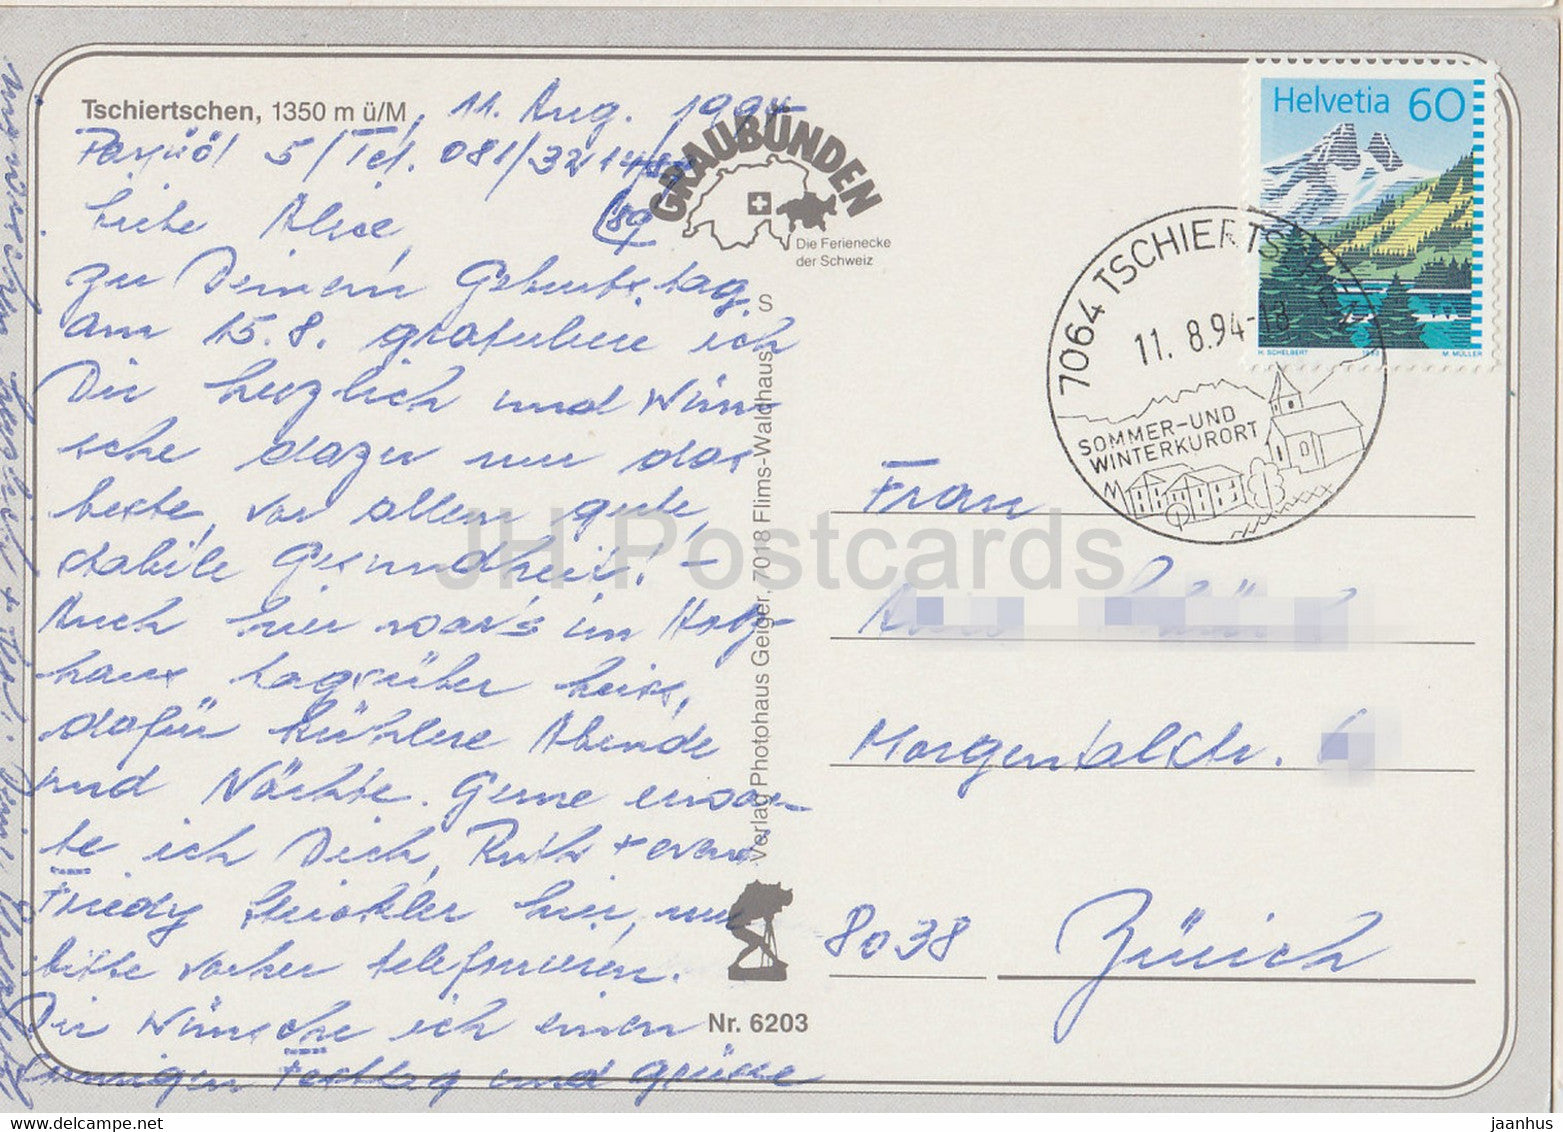 Tschiertschen, 1350 m ü/M, 11. Aug. 1994
5/Tel. 081/
(89
Liebe Alice,
zu Deinem Geburtstag
am 15.8. gratuliere ich
Dir herzlich und wün-
sche dazu nur das
beste, vor allem gute,
stabile Gesundheit! –
Auch hier war's im Holz-
haus tagsüber heiss,
dafür kühlere Abende
und Nächte. Gerne erwar-
te ich Dich, Ruth + even.
Friedy hier, nur
bitte vorher telefonieren.
Dir wünsche ich einen
sonnigen Festtag und grüsse
GRAUBÜNDEN
Die Ferienecke
der Schweiz
S
Verlag Photohaus Geiger, 7018 Flims-Waldhaus
Nr. 6203
Helvetia 60
H. SCHELBERT 1993 M. MÜLLER
7064 TSCHIERTSCHEN
11. 8.94-18
SOMMER-UND
WINTERKURORT
Frau
Morgentalstr. 
8038 Zürich
JH Postcards
jaanhus